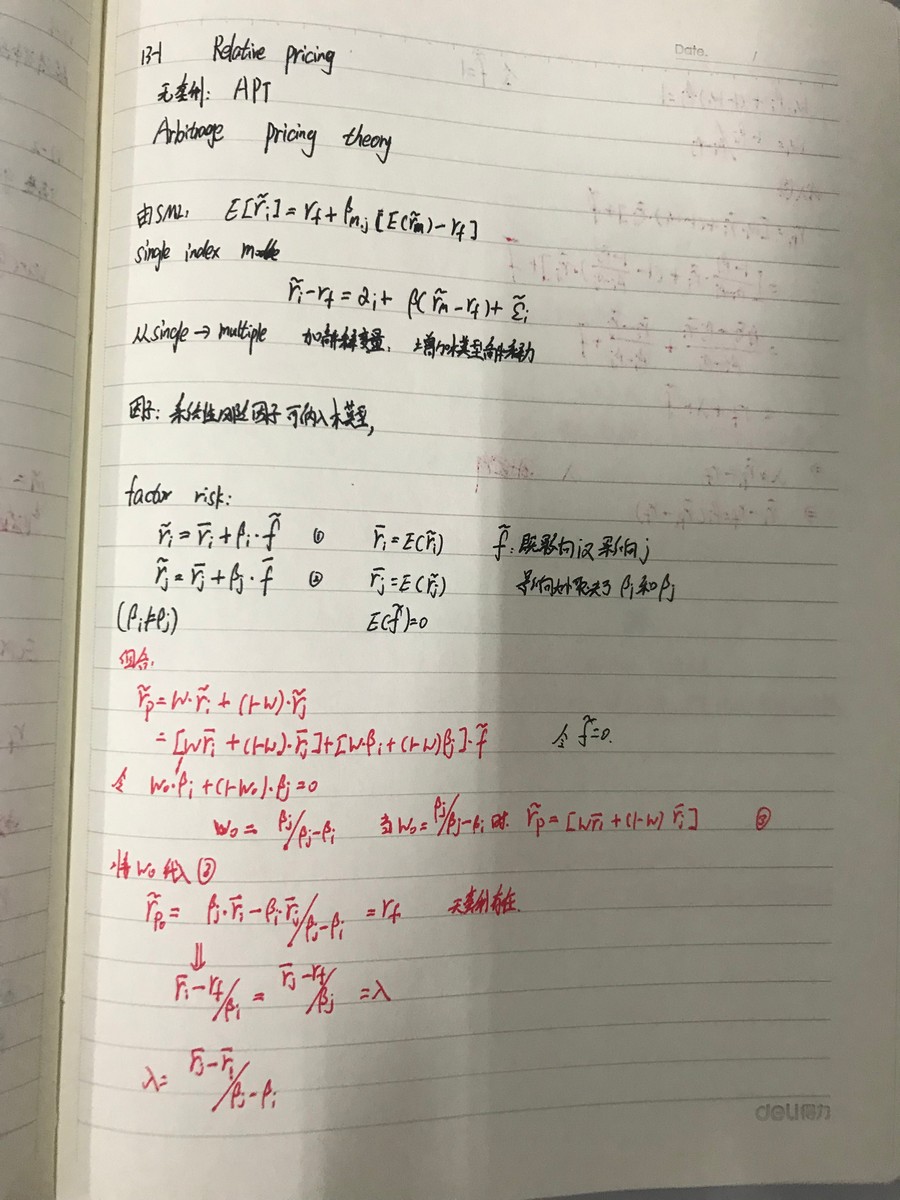 13-1 Relative pricing
Date. /
无套利: APT
Arbitrage pricing theory
由SML, E[r̃i] = rf + βm,j [E(r̃m) - rf]
single index
r̃i - rf = αi + β(r̃m - rf) + ε̃i
从single → multiple 加解释变量, 增加模型解释力
因子: 系统性风险因子可纳入模型,
factor risk:
r̃i = r̄i + βi · f̃ ① r̄i = E(r̃i) f̃: 既影响i又影响j
r̃j = r̄j + βj · f̃ ② r̄j = E(r̃j) 影响取决于βi和βj
(βi≠βj) E(f̃)=0
组合,
r̃p = w·r̃i + (1-w)·r̃j
= [wr̄i + (1-w)·r̄j] + [w·βi + (1-w)βj]·f̃ 令 f̃=0.
令 w0·βi + (1-w0)·βj = 0
w0 = βj/βj-βi 当w0 = βj/βj-βi 时, r̃p = [wr̄i + (1-w) r̄j] ③
将w0代入③
r̃p0 = βj·r̄i - βi·r̄j/βj-βi = rf 无套利存在.
⇓
r̄i-rf/βi = r̄j-rf/βj = λ
λ = r̄j-r̄i/βj-βi
deli得力